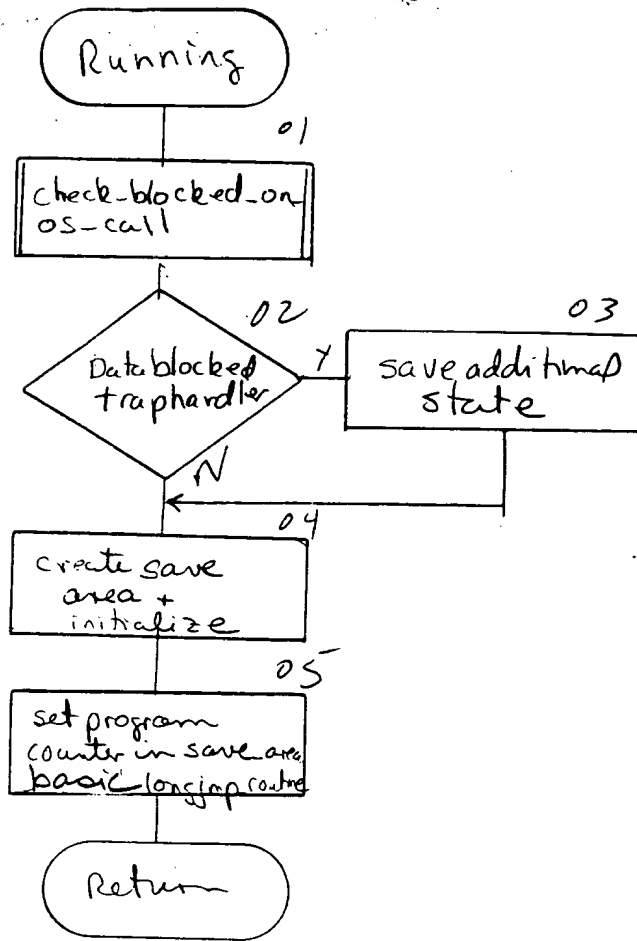 Running
01
check_blocked_on_
os_call
02
Data blocked
traphandler
Y
N
03
save additional
state
04
create save
area +
initialize
05
set program
counter in save area
basic longjmp routine
Return